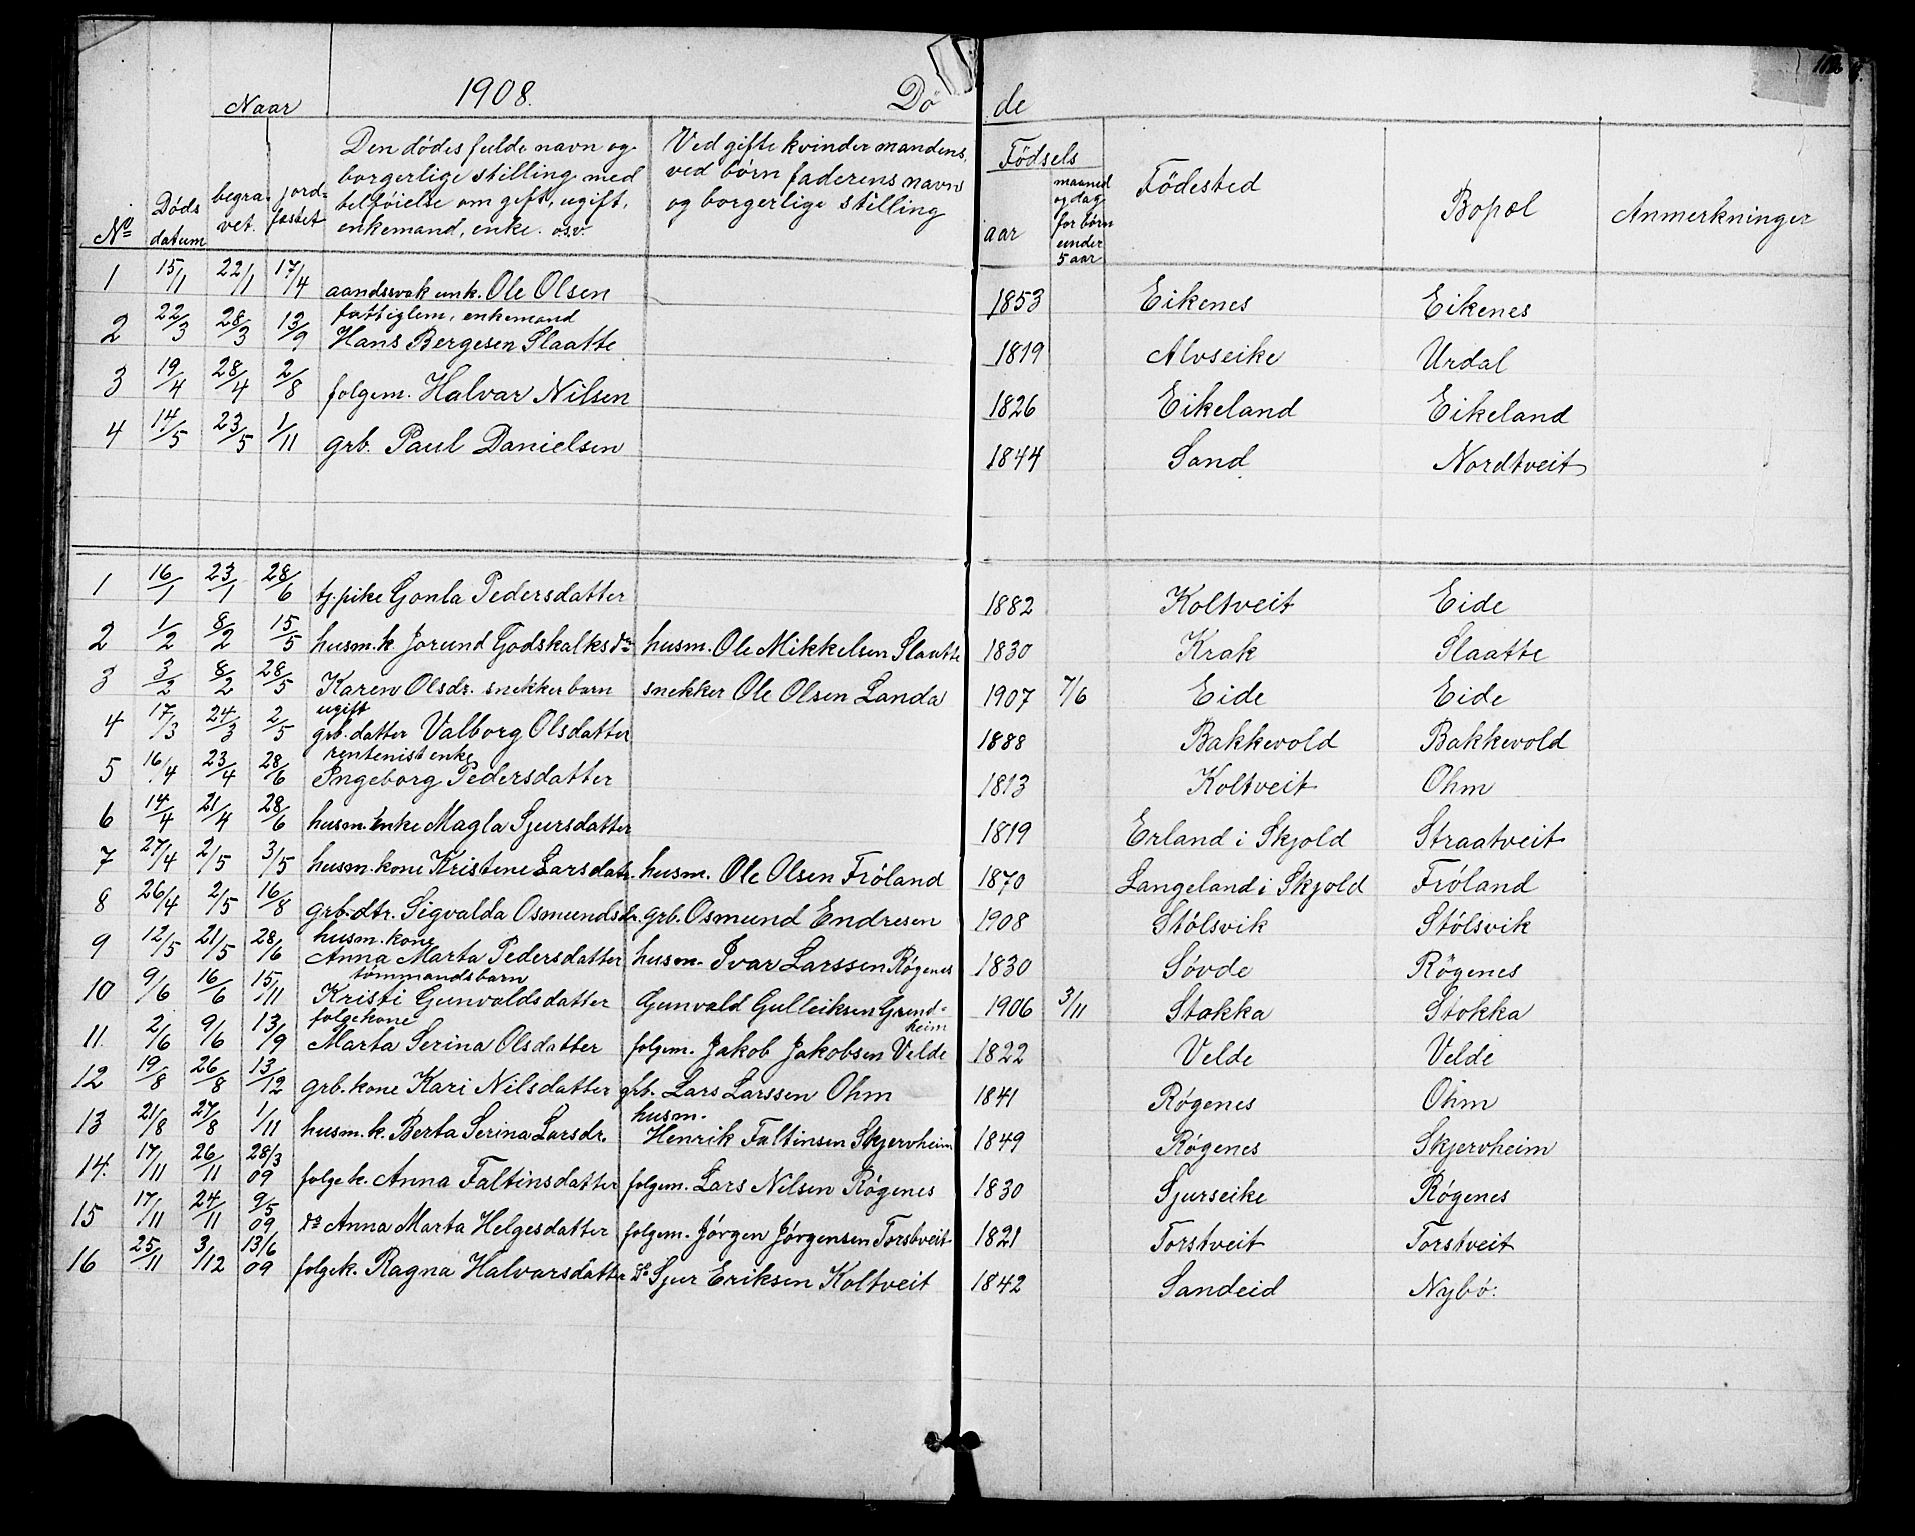 1908. Døde
Naar
Nº
Døds datum
begravet.
jordfæstet
Den dødes fulde navn og borgerlige stilling med tilføielse om gift, ugift, enkemand, enke. osv.
Ved gifte kvinder mandens, ved børn faderens navn og borgerlige stilling
Fødsels
aar
maaned og dag for børn under 5 aar
Fødested
Bopæl
Anmerkninger
1 15/1 22/1 17/4 aandssvak unk. Ole Olsen 1853 Eikenes Eikenes
2 22/3 28/3 13/9 fattiglem, enkemand Hans Bergesen Slaatte 1819 Alvseike Urdal
3 19/4 28/4 2/8 folgem. Halvar Nilsen 1826 Eikeland Eikeland
4 14/5 23/5 1/11 grb. Paul Danielsen 1844 Sand Nordtveit
1 16/1 23/1 28/6 tj. pike Gonla Pedersdatter 1882 Koltveit Eide
2 1/2 8/2 15/5 husm.k. Jorund Godskalksdr husm. Ole Mikkelsen Slaatte 1830 Krak Slaatte
3 3/2 8/2 28/5 Karen Olsdr. snekkerbarn snekker Ole Olsen Landa 1907 7/6 Eide Eide
4 17/3 24/3 2/5 ugift grb. datter Valborg Olsdatter 1888 Bakkevold Bakkevold
5 16/4 23/4 28/6 rentenist enke Ingeborg Pedersdatter 1813 Koltveit Ohm
6 14/4 21/4 28/6 husm. enke Magla Sjursdatter 1819 Erland i Skjold Straatveit
7 27/4 2/5 3/5 husm. kone Kristene Larsdatr. husm. Ole Olsen Frøland 1870 Langeland i Skjold Frøland
8 26/4 2/5 16/8 grb. dtr. Sigvalda Osmundsdr. grb. Osmund Endresen 1908 Stølsvik Stølsvik
9 12/5 21/5 28/6 husm. kone Anna Marta Pedersdatter husm. Ivar Larssen Røgenes 1830 Søvde Røgenes
10 9/6 16/6 15/11 tømmandsbarn Kristi Gunvaldsdatter Gunvald Gulleiksen Grindheim 1906 3/11 Stokka Stokka
11. 2/6 9/6 13/9 folgekone Marta Serina Olsdatter folgem. Jakob Jakobsen Velde 1822 Velde Velde
12 19/8 26/8 13/12 grb. kone Kari Nilsdatter grb. Lars Larssen Ohm 1841 Røgenes Ohm
13 21/8 27/8 1/11 husm. k. Berta Serina Larsdr. husm. Henrik Faltinsen Skjervheim 1849 Røgenes Skjervheim
14. 17/11 26/11 28/3 09 folgek. Anna Faltinsdatter folgem. Lars Nilsen Røgenes 1830 Sjurseike Røgenes
15 17/11 24/11 9/5 09 do Anna Marta Helgesdatter folgem. Jørgen Jørgensen Torstveit 1821 Torstveit Torstveit
16 25/11 3/12 13/6 09 folgek. Ragna Halvarsdatter do Sjur Eriksen Koltveit 1842 Sandeid Nybø.